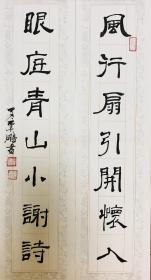 風行扇引開懷入
眼底青山小謝詩